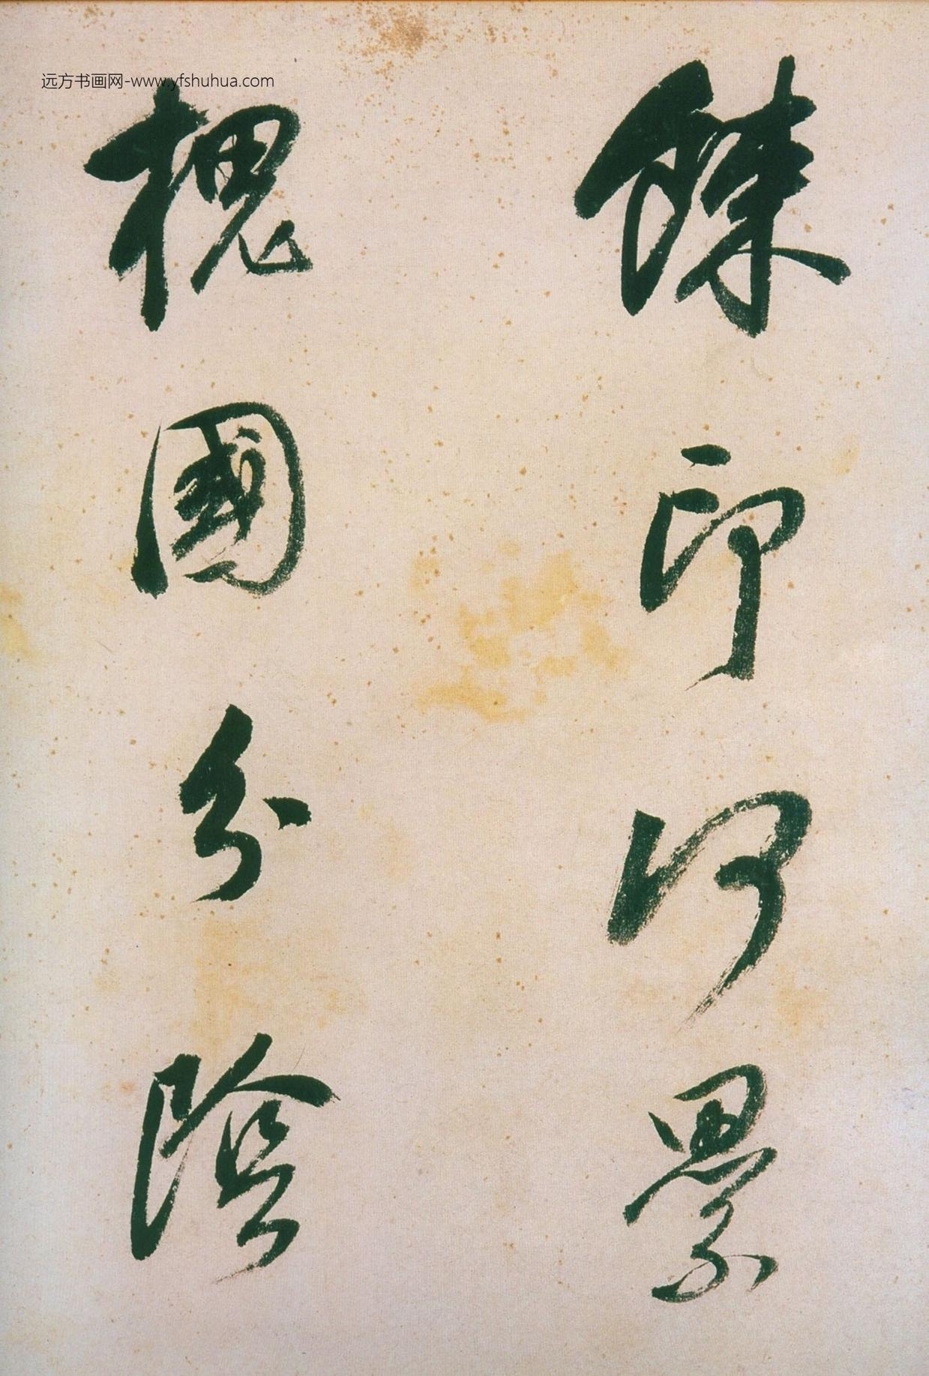 远方书画网-www.yfshuhua.com
印何累
槐國分陰